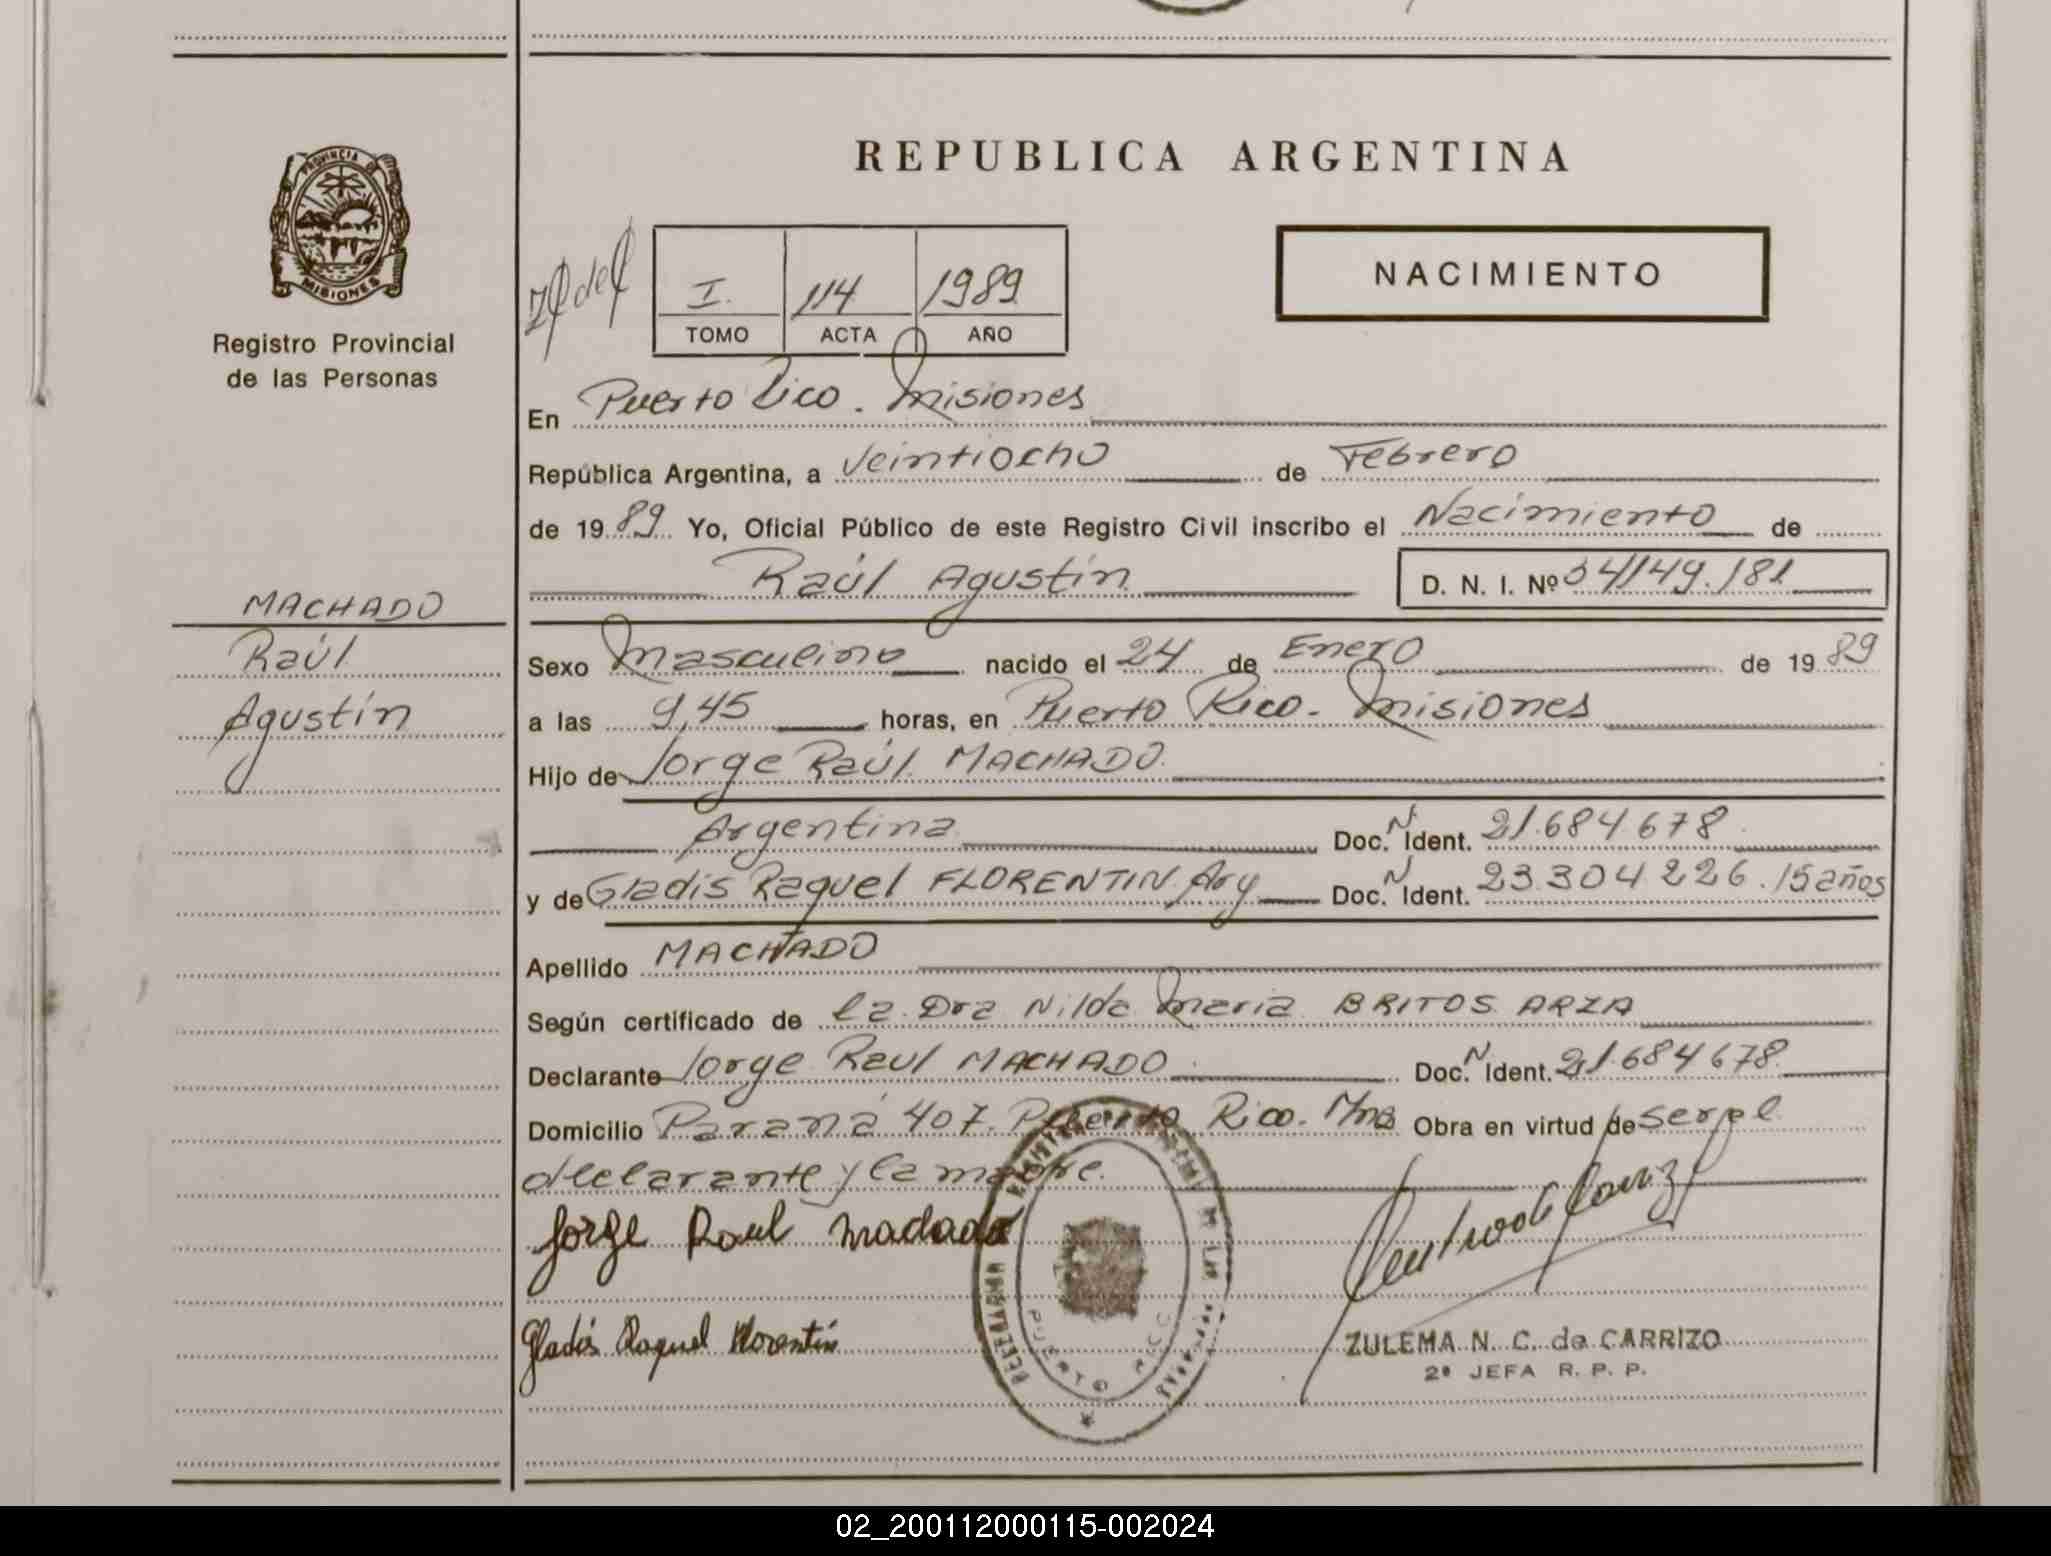 REPUBLICA ARGENTINA
PROVINCIA DE
MISIONES
Registro Provincial
de las Personas
I. 114 1989
TOMO ACTA AÑO
NACIMIENTO
En Puerto Rico. Misiones
República Argentina, a Veintiocho de Febrero
de 1989 Yo, Oficial Público de este Registro Civil inscribo el Nacimiento de
Raúl Agustín D. N. I. Nº 34149.181
MACHADO
Raúl
Agustín
Sexo Masculino nacido el 24 de Enero de 1989
a las 9,45 horas, en Puerto Rico. Misiones
Hijo de Jorge Raúl MACHADO.
Argentina Doc. N. Ident. 21.684.678
y de Gladis Raquel FLORENTIN. Arg Doc. N Ident. 23.304.226. 15 años
Apellido MACHADO
Según certificado de la Dra Nilda Maria BRITOS ARZA
Declarante Jorge Raul MACHADO Doc. N Ident. 21.684.678.
Domicilio Paraná 407. Puerto Rico. Mns Obra en virtud de ser el
declarante y la madre.
Jorge Raul Machado
Gladis Raquel Florentin
PUERTO RICO
ZULEMA N. C. de CARRIZO
2ª JEFA R. P. P.
02_200112000115-002024